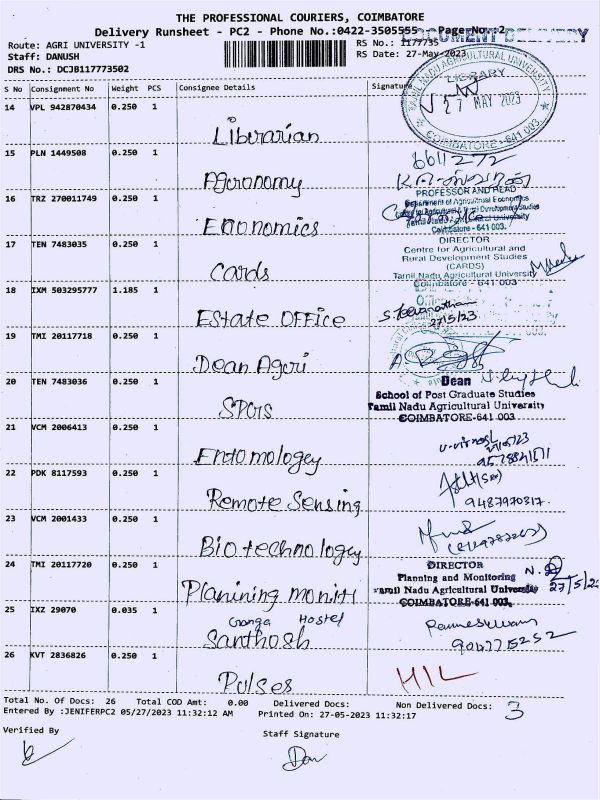 THE PROFESSIONAL COURIERS, COIMBATORE
Delivery Runsheet - PC2 - Phone No.:0422-3505555 Page No.:2
DOCUMENT DELIVERY
Route: AGRI UNIVERSITY -1 RS No.: 1177735
Staff: DANUSH RS Date: 27-May-2023
DRS No.: DCJB117773502
S No Consignment No Weight PCS Consignee Details Signature
TAMIL NADU AGRICULTURAL UNIVERSITY
LIBRARY
27 MAY 2023
COIMBATORE - 641 003
14 VPL 942870434 0.250 1 Librarian
6611272
15 PLN 1449508 0.250 1 Agronomy
16 TRZ 270011749 0.250 1 Economics
PROFESSOR AND HEAD
Department of Agricultural Economics
Tamil Nadu Agricultural University
Coimbatore - 641 003.
17 TEN 7483035 0.250 1 Cards
DIRECTOR
Centre for Agricultural and
Rural Development Studies
(CARDS)
Tamil Nadu Agricultural University
Coimbatore - 641 003
18 IXM 503295777 1.185 1 Estate OFFice
27/5/23
19 TMI 20117718 0.250 1 Dean Agri
20 TEN 7483036 0.250 1 SPGS
Dean
School of Post Graduate Studies
Tamil Nadu Agricultural University
COIMBATORE-641 003
21 VCM 2006413 0.250 1 Entomology
22 PDK 8117593 0.250 1 Remote Sensing
9487970317.
23 VCM 2001433 0.250 1 Biotechnology
24 TMI 20117720 0.250 1 Planining moniti
DIRECTOR
Planning and Monitoring
Tamil Nadu Agricultural University
COIMBATORE-641 003.
27/5/23
25 IXZ 29070 0.035 1 Santhosh
Hostel
9047715252
26 KVT 2836826 0.250 1 Pulses
HIL
Total No. Of Docs: 26 Total COD Amt: 0.00 Delivered Docs: Non Delivered Docs: 3
Entered By :JENIFERPC2 05/27/2023 11:32:12 AM Printed On: 27-05-2023 11:32:17
Verified By Staff Signature
Dan